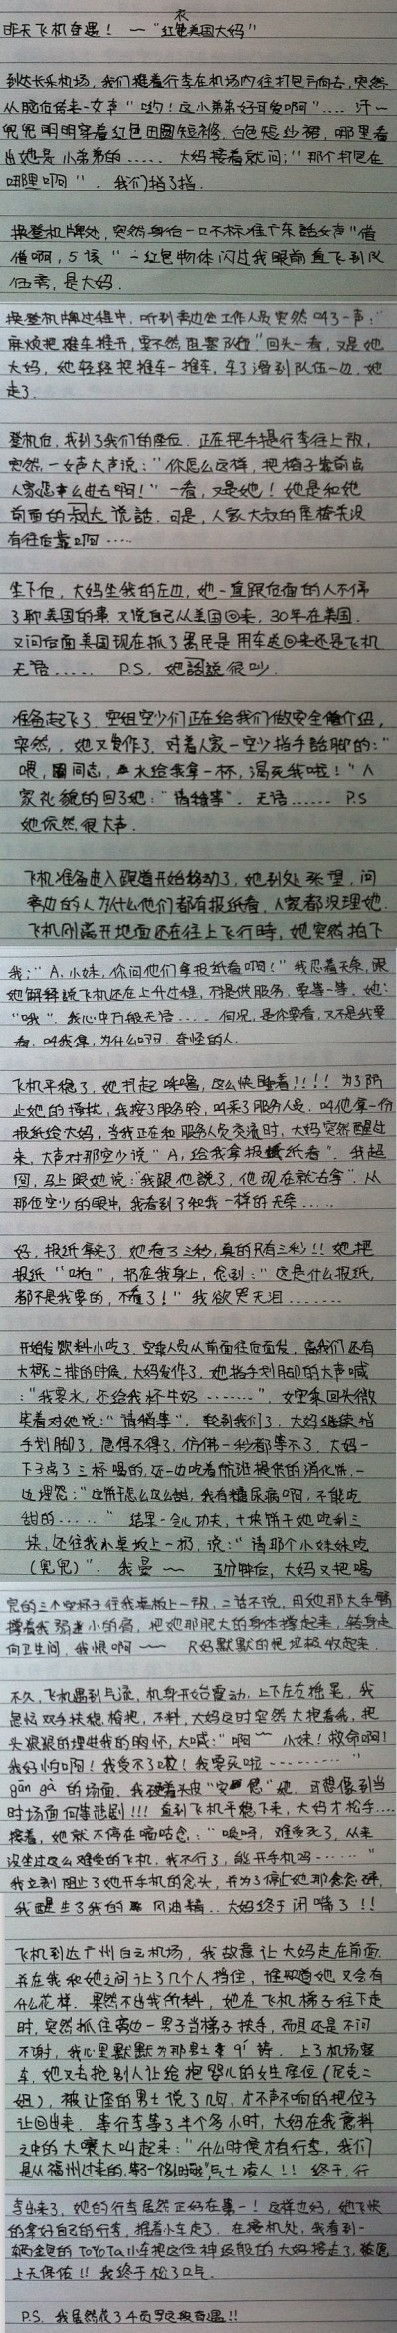 昨天飞机奇遇！ — "红衣美国大妈"
到达长乐机场，我们推着行李在机场内往打包方向去，突然
从脑后传来一女声"哟！这小弟弟好可爱啊"‥‥ 汗～
兜兜明明穿着红色田园短裤，白色短纱裙，哪里看
出她是小弟弟的‥‥‥ 大妈接着就问："那个打包在
哪里啊"。我们指了指．
换登机牌处，突然身后一口不标准广东話女声"借
借啊，5该" 一红色物体闪过我眼前直飞到队
伍旁，是大妈．
换登机牌过程中，听到旁边的工作人员突然叫3一声："
麻烦把推车推开，要不然阻塞队伍"回头一看，又是她
大妈，她轻轻把推车一推，车3滑到队伍一边，她
走3．
登机后，找到3我们的座位．正在把手提行李往上放，
突然，一女声大声说："你怎么这样，把椅子靠前点
人家怎么进去啊！" 一看，又是她！她是和她
前面的大叔說話．可是，人家大叔的座椅并没
有往后靠啊‥‥‥
坐下后，大妈坐我的左边，她一直跟后面的人不停
3聊美国的事．又说自己从美国回来，30年在美国．
又问后面美国现在抓3黑民是用车送回来还是飞机
无语‥‥‥ P.S. 她說話很吵．
准备起飞3．空姐空少们正在给我们做安全简介，
突然，她又发作3．对着人家一空少指手話脚的："
喂，同志，水给我拿一杯，渴死我啦！"人
家礼貌的回3她："请稍等"．无语‥‥‥ P.S
她依然很大声．
飞机准备进入跑道开始移动3，她到处张望，问
旁边的人为什么他们都有报纸看，人家都没理她．
飞机刚离开地面还在往上飞行時，她突然拍下
我："A，小妹，你问他们拿报纸看啊！"我忍着无奈，跟
她解释說飞机还在上升过程，不提供服务．要等一等．她：
"哦"．我心中万般无语‥‥ 何况，是你要看，又不是我要
看．叫我拿，为什么啊．奇怪的人．
飞机平稳3，她打起呼噜，这么快睡着！！！！为3防
止她的骚扰，我按3服务铃，叫来3服务人员．叫他拿一份
报纸给大妈，当我正在和服务人员交流时，大妈突然醒过
来，大声对那空少说"A，给我拿报纸看"．我超
囧，马上跟她说："我跟他說3，他现在就去拿"．从
那位空少的眼中，我看到3和我一样的无奈‥‥
好，报纸拿来3．她看3三秒，真的只有三秒！！她把
报纸"啪"，扔在我身上，念到："这是什么报纸，
都不是我要的，不看3！"我欲哭无泪‥‥‥‥
开始发饮料小吃3．空乘人员从前面往后面发，离我们还有
大概二排的时候，大妈发作3．她指手划脚的大声喊
："我要水，还给我杯牛奶‥‥‥‥"．女空乘回头微
笑着对她说："请稍等"．轮到我们3，大妈继续指
手划脚3，急得不得3，仿佛一秒都等不3．大妈一
下子点3三杯喝的，还一边吃着航班提供的消化饼，一
边埋怨："这饼干怎么这么甜，我有糖尿病啊，不能吃
甜的‥‥‥" 结果一会儿功夫，十块饼干她吃剩三
块，还往我小桌板上一扔，说："请那个小妹妹吃
(兜兜)"．我晕～～ 五分钟后，大妈又把喝
完的三个空杯子往我桌板上一放，二话不说，用她那大手臂
撑着我弱小的肩，把她那肥大的身体撑起来，转身走
向卫生间，我恨啊～～ 只好默默的把垃圾收起来．
不久，飞机遇到气流，机身开始震动．上下左右摇晃，我
急忙双手扶稳椅把，不料，大妈这时突然大抱着我，把
头狠狠的埋进我的胸怀，大喊："啊～～小妹！救命啊！
我好怕啊！我受不3啦！我要死啦‥‥‥‥‥‥"
gān gà 的场面．我硬着头皮"安慰"她．可想像到当
时场面何等悲剧！！！直到飞机平稳下来，大妈才松手‥‥
接着，她就不停在嘀咕念："哎呀，难受死3，从来
没坐过这么难受的飞机，我不行3，能开手机吗‥‥‥"
我立刻阻止3她开手机的念头，并为3停止她那念念碎，
我醒生3我的 风油精‥大妈终于闭嘴3！！
飞机到达广州白云机场，我故意让大妈走在前面．
并在我和她之间让3几个人挡住，谁知道她又会有
什么花样．果然不出我所料，她在飞机梯子往下走
时，突然抓住旁边一男子当梯子扶手，而且还是不问
不谢，我心里默默为那男士哀9'铸．上3机场接
车，她又去抢别人让给抱婴儿的女生座位(尼克二
妞)，被让座的男士说3几句，才不声不响的把位子
让回出来．等行李等3半个多小时，大妈在我意料
之中的大嚷大叫起来："什么时候才有行李，我们
是从福州过来的，等3一个多小时啦"气士凌人！！终于，行
李出来3，她的行李居然正好在第一！这样也好，她飞快
的拿好自己的行李，推着小车走3．在接机处，我看到一
辆金色的TOYOTA小车把这位神级般的大妈接走3，
上天保佑！！我终于松3口气．
P.S. 我居然花34页写这段奇遇！！